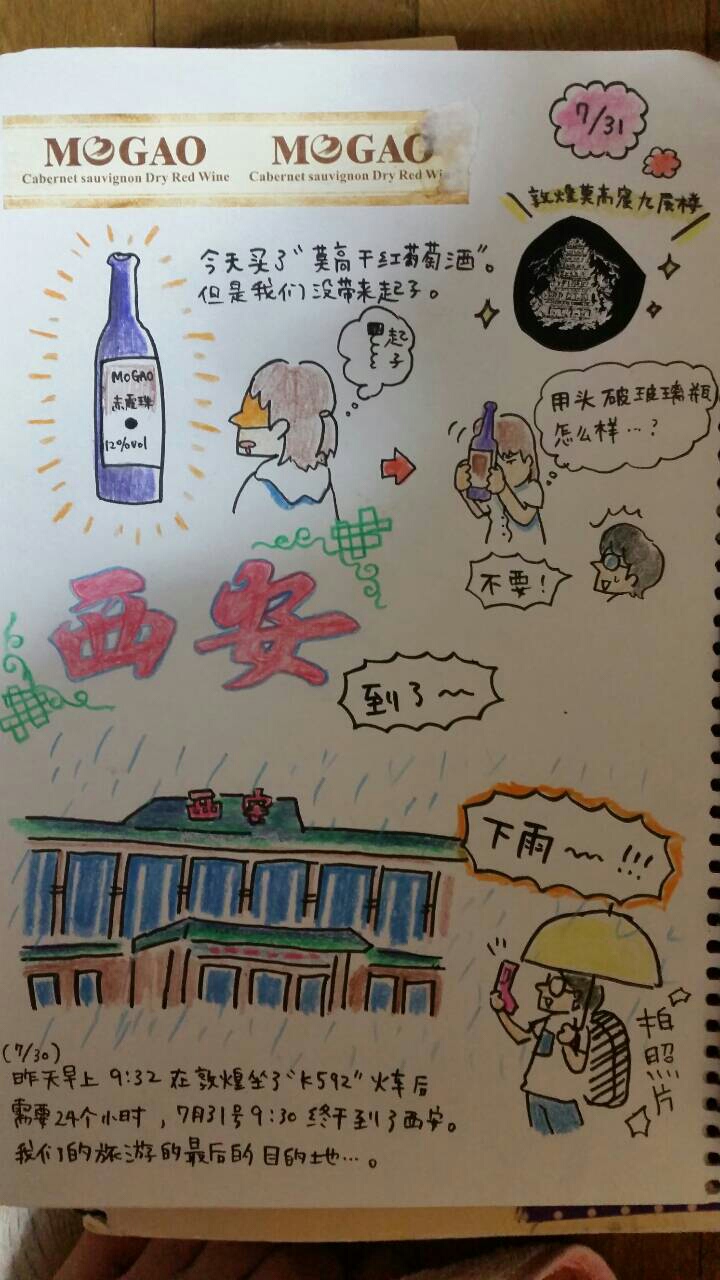 MOGAO MOGAO
Cabernet sauvignon Dry Red Wine Cabernet sauvignon Dry Red Wi
7/31
敦煌莫高窟九层楼
今天买了“莫高干红葡萄酒”。
但是我们没带来起子。
起子
MOGAO
赤霞珠
12%vol
用头破玻璃瓶
怎么样…?
不要!
西安
到了～
西安
下雨～!!!
拍照片
(7/30)
昨天早上 9:32 在敦煌坐了“K592”火车后
需要24个小时，7月31号9:30 终于到了西安。
我们的旅游的最后的目的地…。